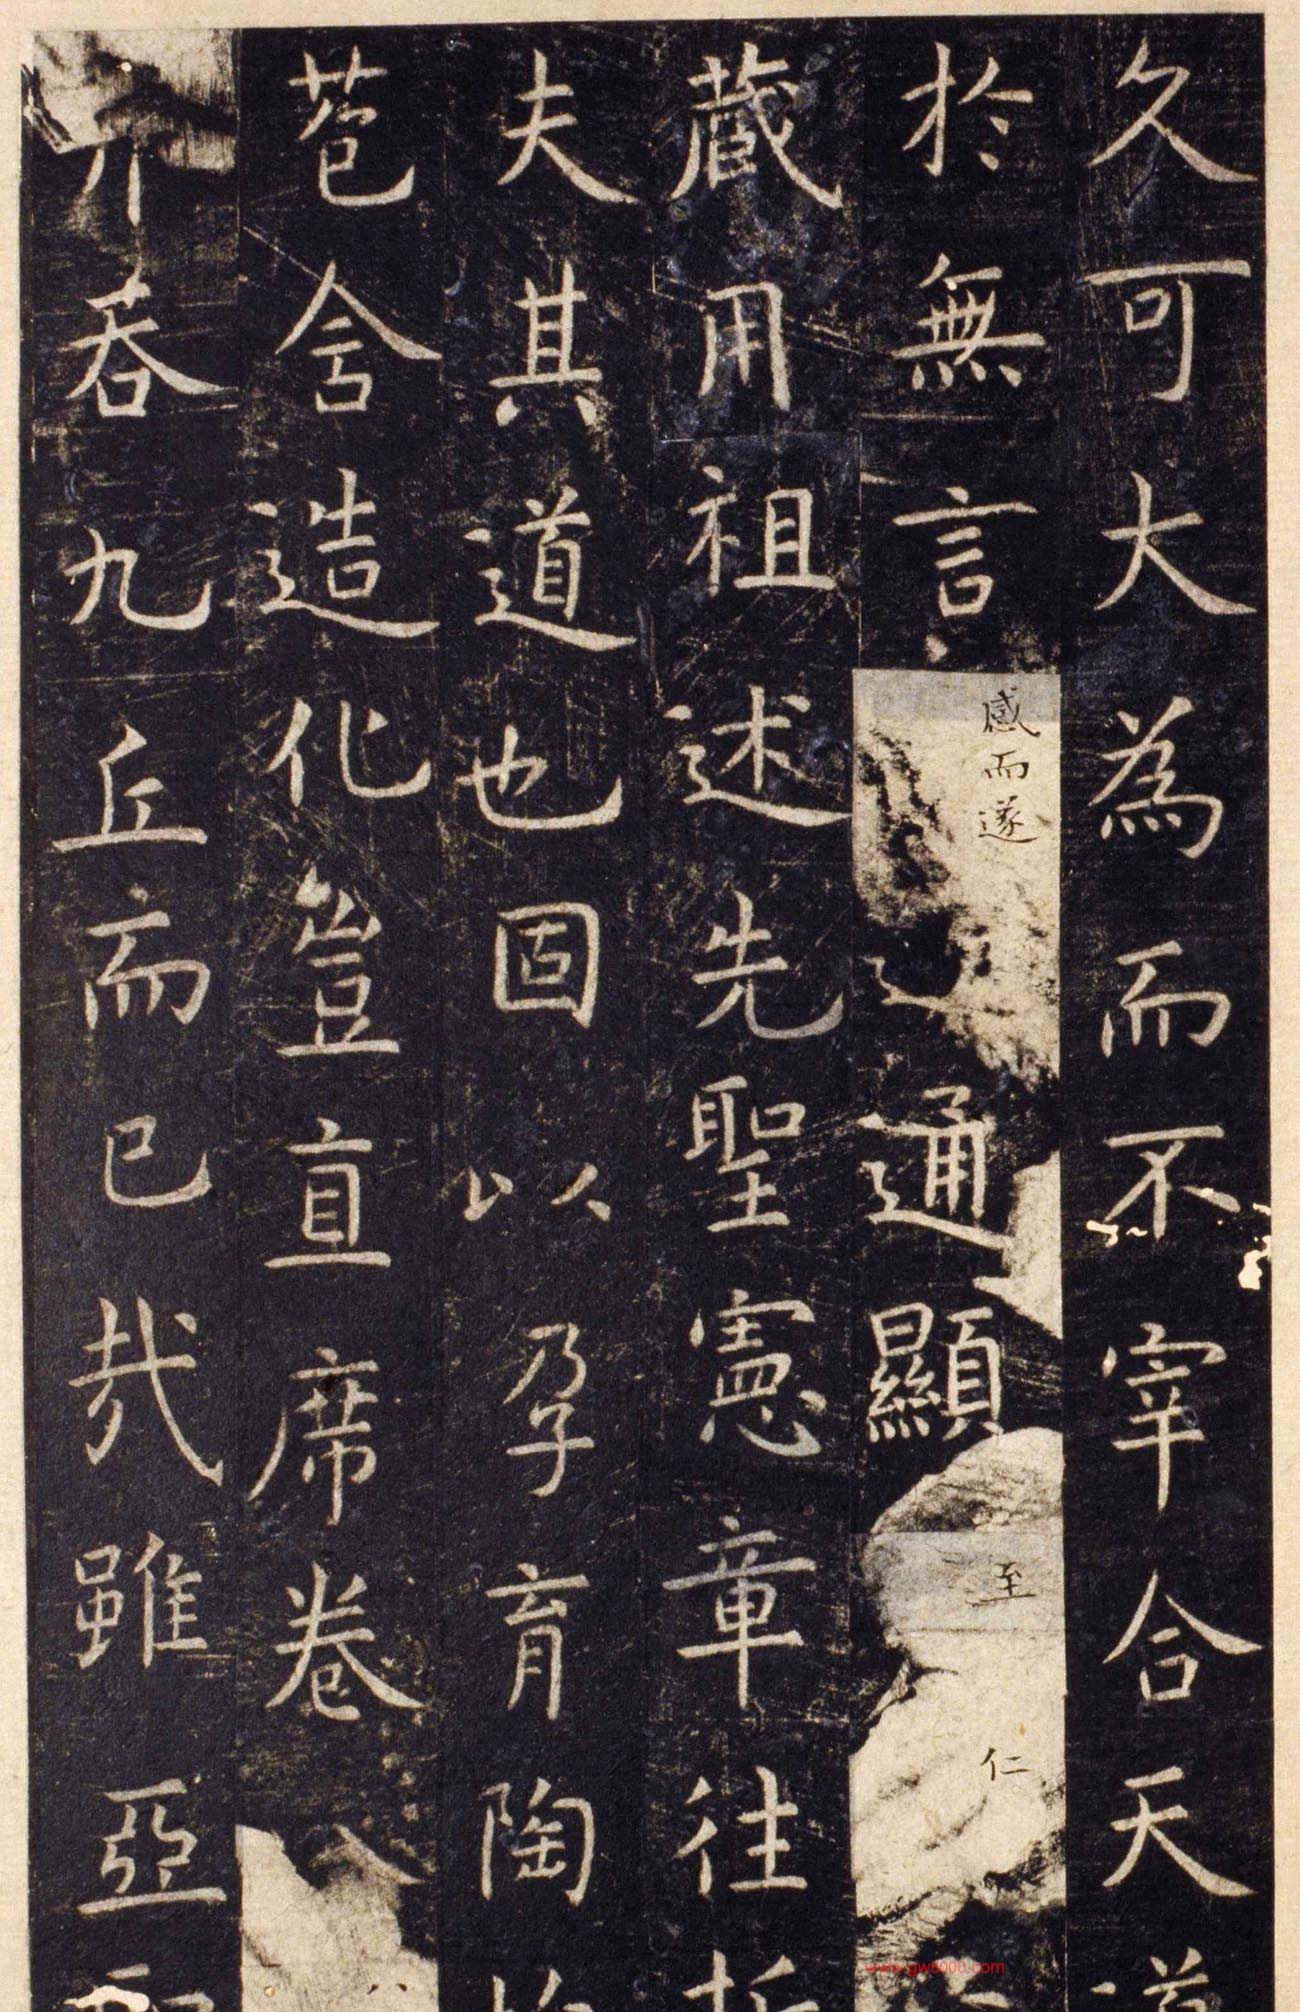 久可大為而不宰合天
於無言感而遂通顯至仁
藏用祖述先聖憲章往
夫其道也固以孕育陶
苞含造化豈直席卷
并吞九丘而已哉雖亞
www.gw8000.com